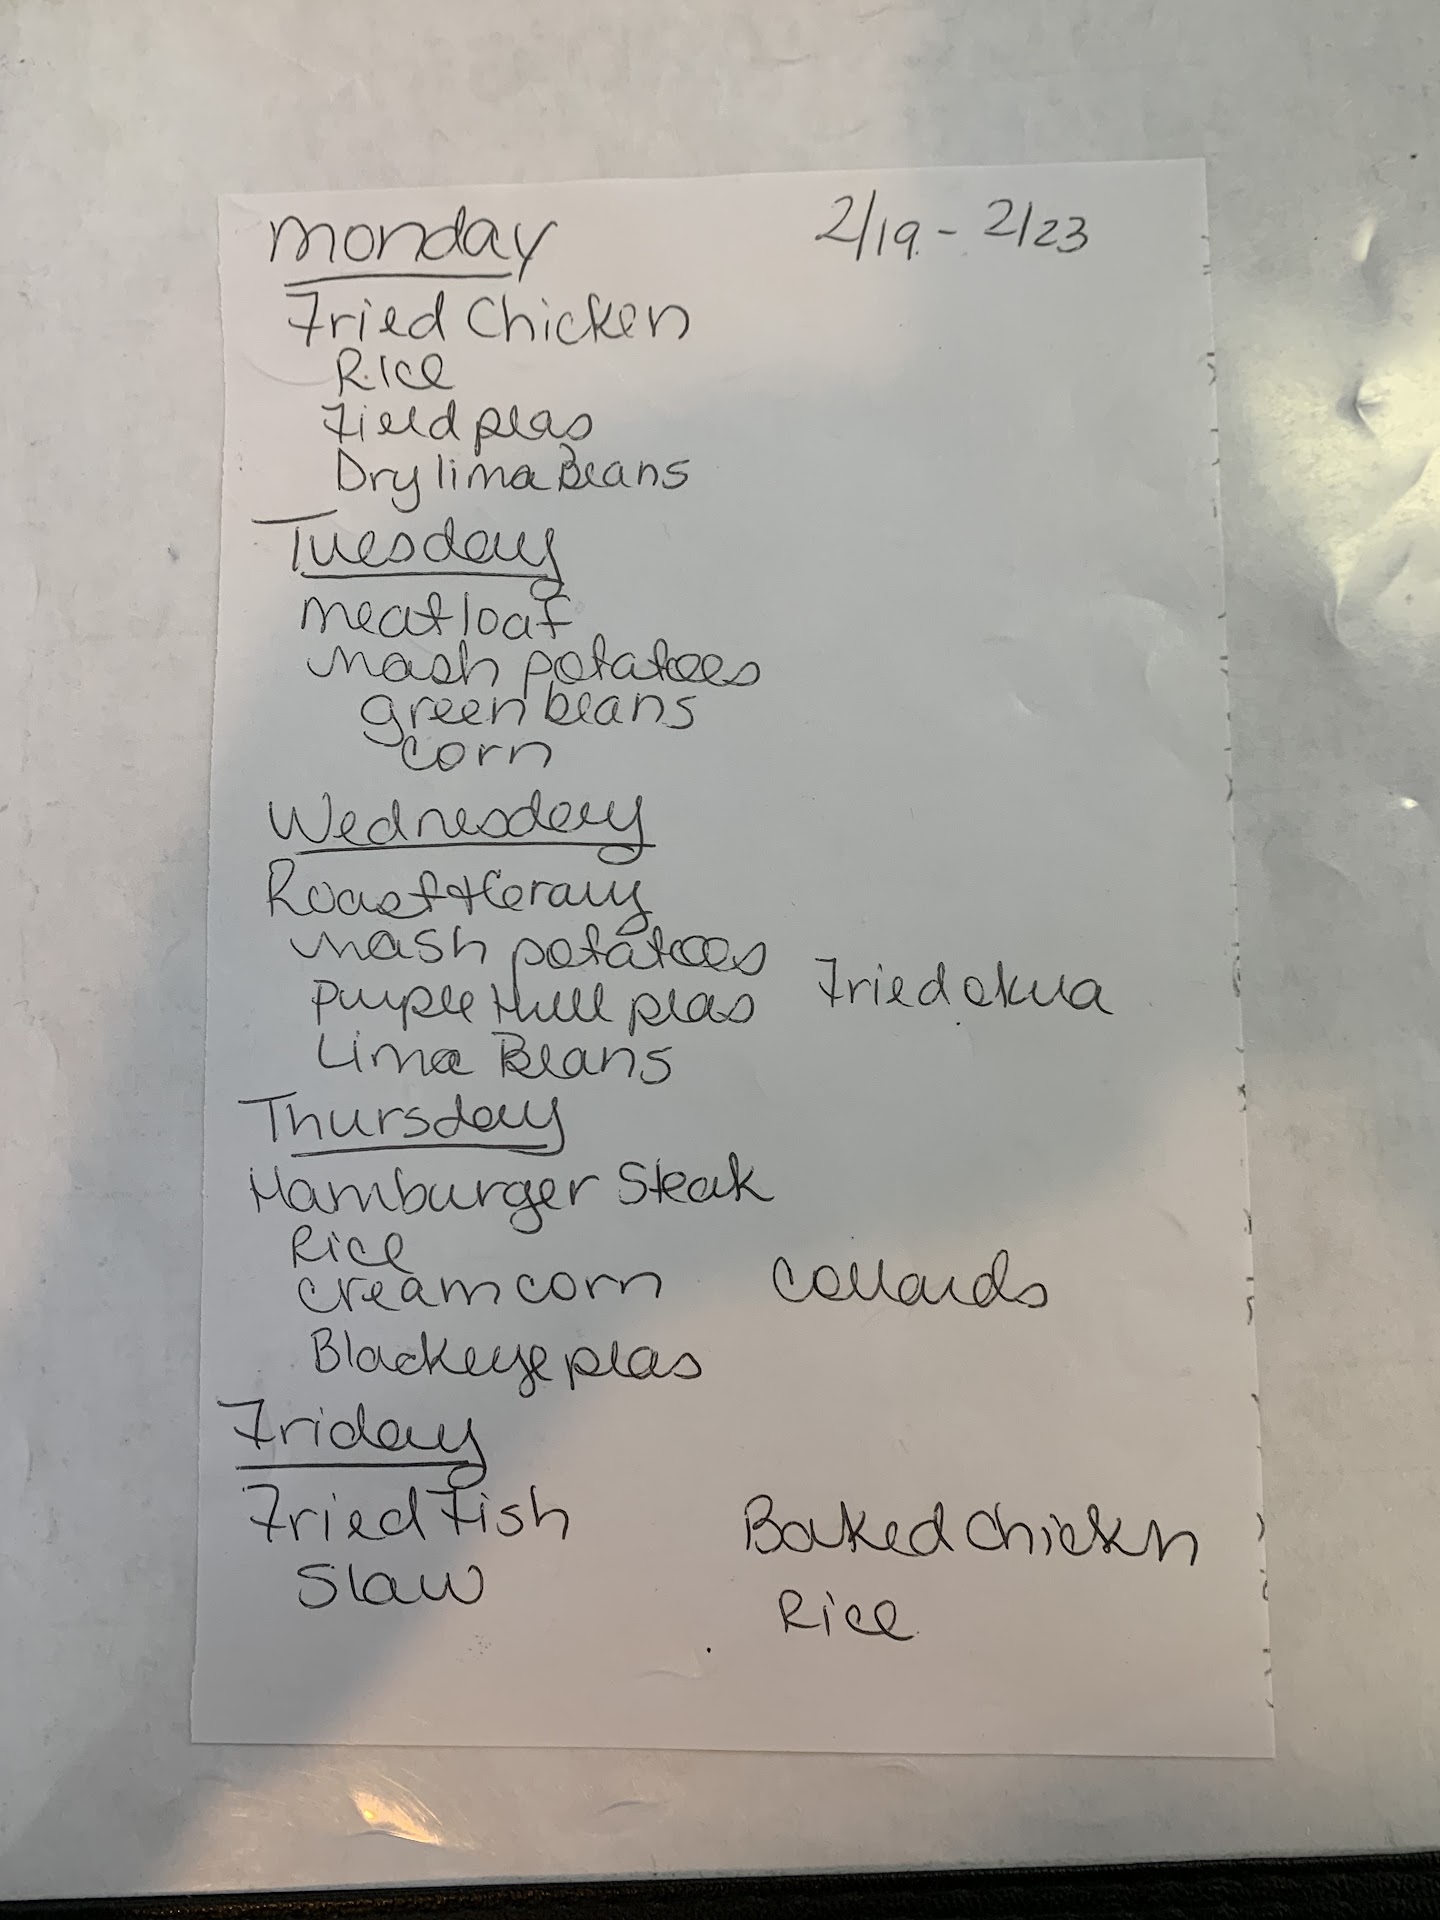 Monday 2/19 - 2/23
Fried Chicken
Rice
Field peas
Dry lima Beans
Tuesday
meatloaf
mash potatoes
green beans
corn
Wednesday
Roast + Gravy
mash potatoes
Fried okra
Purple Hull peas
Lima Beans
Thursday
Hamburger Steak
Rice
cream corn Collards
Blackeye peas
Friday
Fried Fish Baked chicken
Slaw Rice